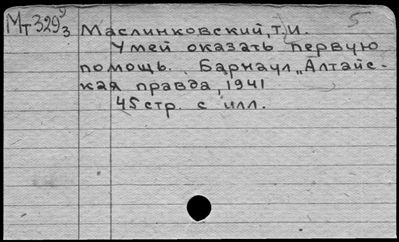 Мт 329⁹₃ Маслинковский, Т.И. 5
Умей оказать первую
помощь. Барнаул „Алтайс-
кая правда, 1941
45 стр. с илл.